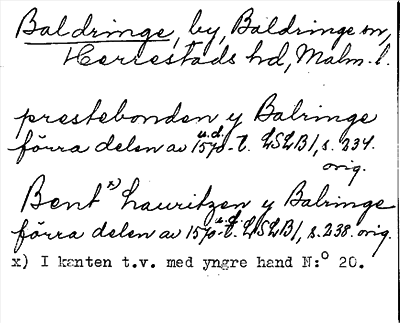 Baldringe, by, Baldringe sn,
Herrestads hd, Malm. l.
prestebonden y Balringe
förra delen av 1570-t. LSLB1, s. 234.
u.d.
orig.
Bent x) Lauritzen y Balringe
förra delen av 1570-t. LSLB1, s. 238. orig.
u.d.
x) I kanten t.v. med yngre hand N:o 20.